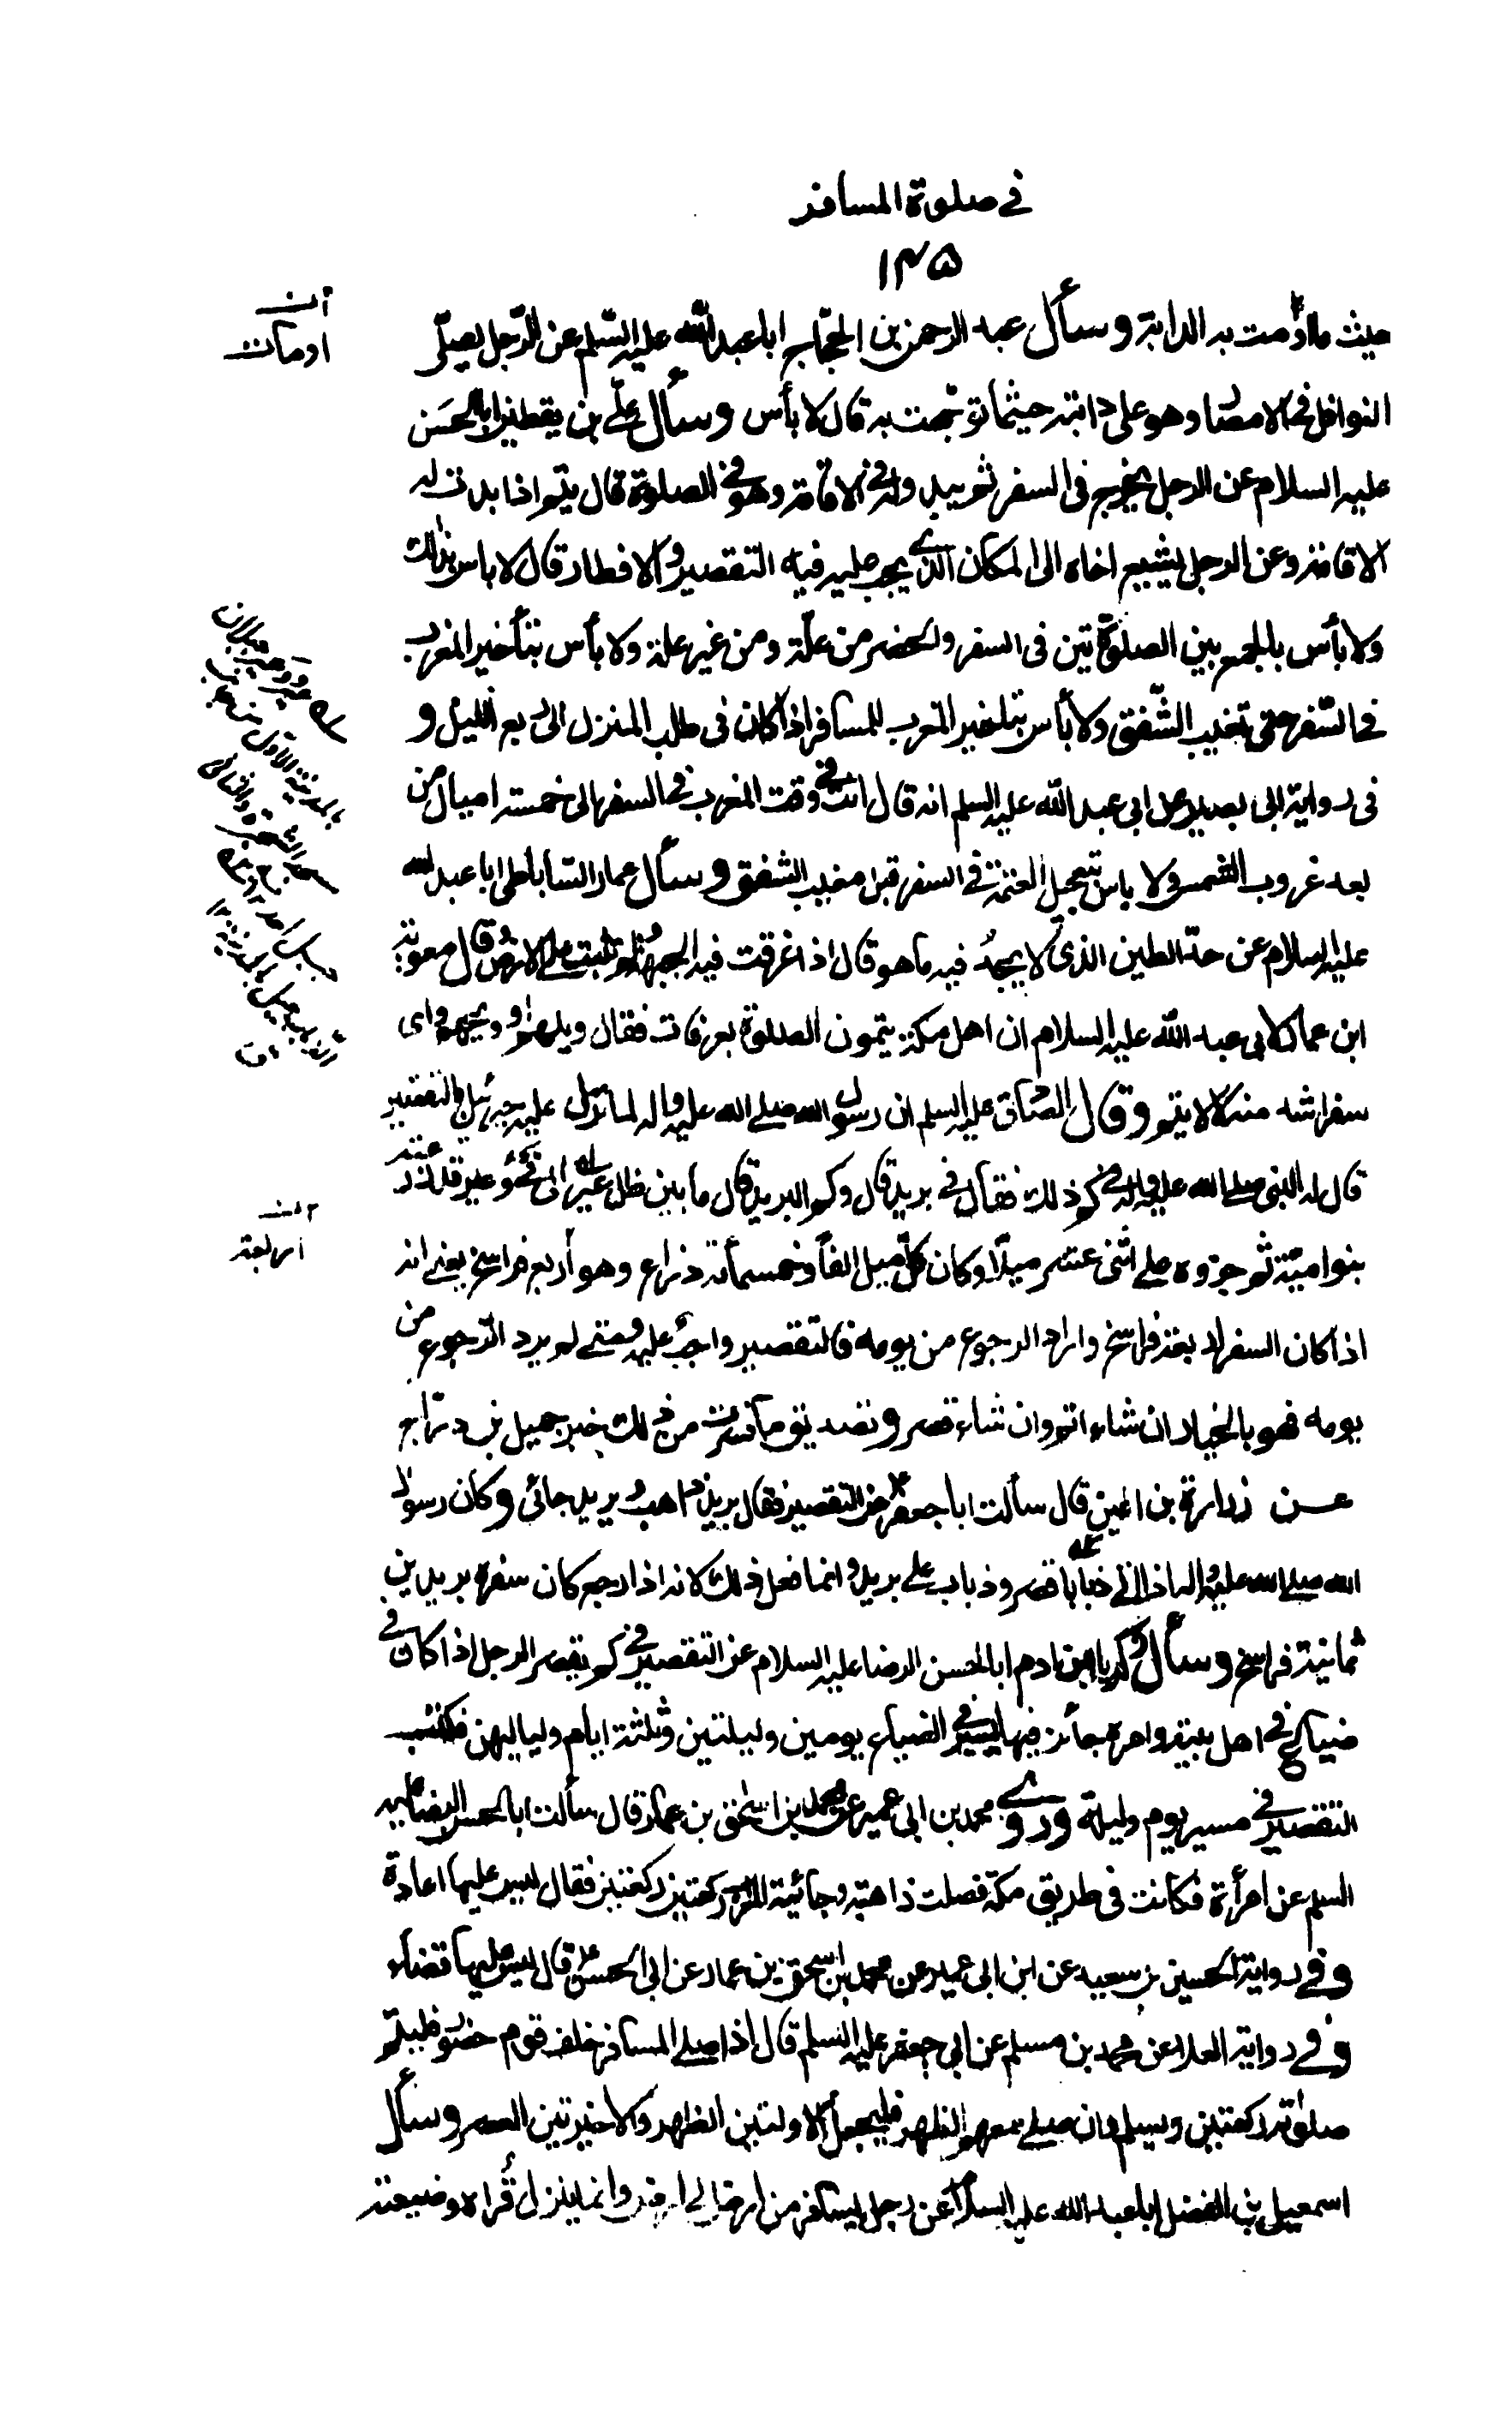 في صلوة المسافر
١٣٥
حيث ما توجهت به الدابة وسأل عبد الرحمن بن الحجاج ابا عبد الله عليه السلم عن الرّجل يصلّى
النوافل في الامصار وهو على دابته حيثما توجهت به قال لا بأس وسأل علي بن يقطين ابا الحسن
عليه السلام عن الرجل يخرج فى السفر ثم يبدو له في الاقامة وهو في الصلوة قال يتم اذا بدت له
الاقامة وعن الرجل يشيع اخاه الى المكان الذي يجب عليه فيه التقصير والافطار قال لا باس بذلك
ولا بأس بالجمع بين الصلوتين فى السفر والحضر من علّة ومن غير علة ولا بأس بتأخير المغرب
في السّفر حتى تغيب الشّفق ولا بأس بتأخير المغرب للمسافر اذا كان فى طلب المنزل الى ربع الليل و
فى رواية ابى بصير عن ابى عبد الله عليه السلم انه قال انت في وقت المغرب في السفر الى خمسة اميال من
بعد غروب الشمس ولا باس بتعجيل العتمة في السفر قبل مغيب الشفق وسأل عمار السّاباطى ابا عبد الله
عليه السلام عن حدّ الطين الذى لا يسجد فيه ما هو قال اذا غرقت فيه الجبهة ولم تثبت على الارض وقال معوية
ابن عمار لابى عبد الله عليه السلام ان اهل مكة يتمون الصلوة بعرفات فقال ويلهم او ويحهم واى
سفر اشد منه لا لا يتم وقال الصّادق عليه السلم ان رسول الله صلى الله عليه واله لما نزل عليه جبرئيل بالتقصير
قال له النبى صلى الله عليه واله في كم ذلك فقال في بريد قال وكم البريد قال ما بين ظل عير الى فئ وعير فذرعته
بنو اميّة ثم جزّوه على اثنى عشر ميلًا وكان كلّ ميل الفًا وخمسمائة ذراع وهو أربع فراسخ يعنى انه
اذا كان السفر اربعة فراسخ واراد الرجوع من يومه فالتقصير واجب عليه ومتى لم يرد الرّجوع من
يومه فهو بالخيار ان شاء اتم وان شاء قصر وتصديق ما فسرت من ذلك خبر جميل بن درّاج
عن زرارة بن اعين قال سألت ابا جعفر عن التقصير فقال بريد ذاهب وبريد جائى وكان رسول
الله صلى الله عليه واله اذا اتى ذبابا قصر وذباب على بريد وانما فعل ذلك لانه اذا رجع كان سفره بريدين
ثمانية فراسخ وسأل زكريا بن ادم ابا الحسن الرضا عليه السلام عن التقصير في كم يقصر الرجل اذا كان في
ضياع اهل بيته وامره جائز فيها يسير في الضياع يومين وليلتين وثلثة ايام ولياليهن فكتب
التقصير في مسير يوم وليلة وروى محمد بن ابى عمير عن محمد بن اسحق بن عمار قال سألت ابا الحسن الرضا عليه
السلم عن امرأة كانت فى طريق مكة فصلت ذاهبة وجائية المغرب ركعتين ركعتين فقال ليس عليها اعادة
وفي رواية الحسين بن سعيد عن ابن ابى عمير عن محمد بن اسحق بن عمار عن ابى الحسن قال ليس عليها قضاء
وفي رواية العلاء عن محمد بن مسلم عن ابى جعفر عليه السلم قال اذا صلى المسافر خلف قوم حضور فليتم
صلوته ركعتين ويسلم وان صلى معهم الظهر فليجعل الاولتين الظهر والاخيرتين العصر وسأل
اسمعيل بن الفضل ابا عبد الله عليه السلام عن رجل يسافر من ارض الى ارض وانما ينزل قراه وضيعته
اربعة